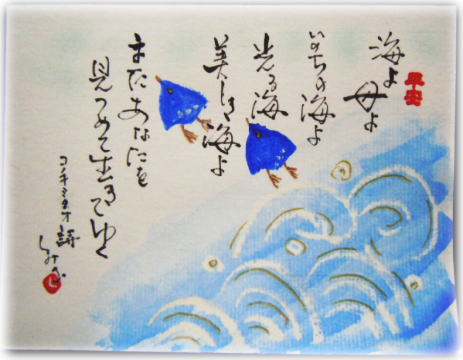 海よ 母よ
いのちの海よ
光る海
美しき海よ
またあなたを
見つめて生きてゆく
平安